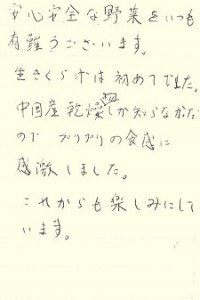 安心安全な野菜をいつも
有難うございます。
生きくらげは初めてでした。
中国産乾燥しか知らなかた
ので プリプリの食感に
感激しました。
これからも楽しみにして
います。